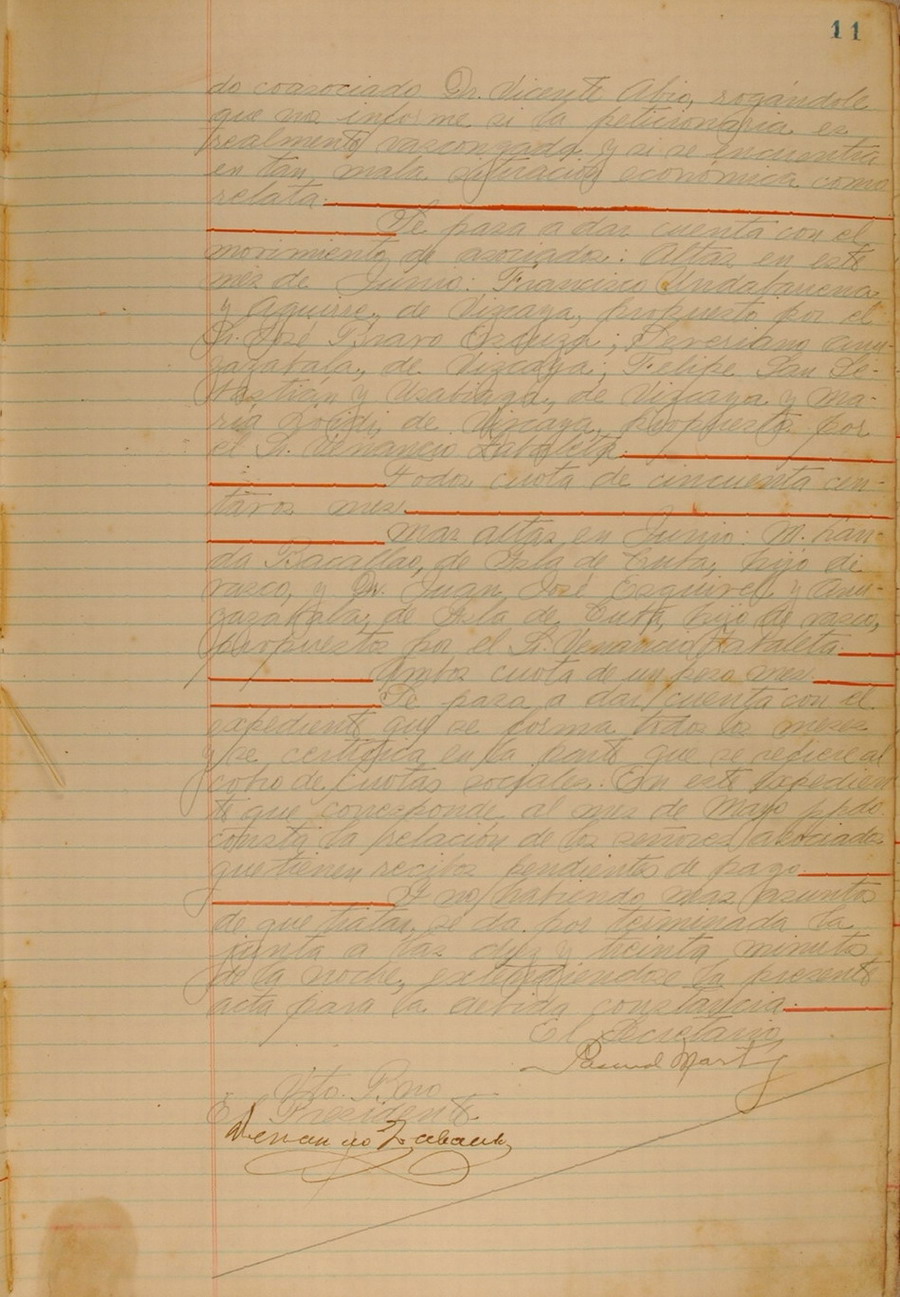 11
do coasociado Dr. Vicente Abio, rogándole
que nos informe si la peticionaria es
realmente vascongada y si se encuentra
en tan mala situación económica como
relata.
Se pasa a dar cuenta con el
movimiento de asociados: Altas en este
mes de Junio: Francisco Undabarrena
y Aguirre, de Vizcaya, propuesto por el
Sr. José Bravo; Severiano Anu-
zazabala, de Vizcaya; Felipe San Se-
bastián y Usabiaga, de Vizcaya y Ma-
ría, de Vizcaya, propuestos por
el Sr. Venancio Zabaleta.
Todos cuota de cincuenta cen-
tavos mes.
Mas altas en Junio: M. Lan-
da Bacallao, de Isla de Cuba, hijo de
vasco, y Dr. Juan José Esquivel y Anu-
zazabala, de Isla de Cuba, hijo de vasco,
propuestos por el Sr. Venancio Zabaleta.
Ambos cuota de un peso mes.
Se pasa a dar cuenta con el
expediente que se forma todos los meses
y se certifica en la parte que se refiere al
cobro de cuotas sociales. En este expedien
te que corresponde al mes de Mayo ppdo.
consta la relación de los señores asociados
que tienen recibos pendientes de pago.
Y no habiendo mas asuntos
de que tratar, se da por terminada la
junta a las diez y treinta minutos
de la noche, extendiendose la presente
acta para la debida constancia.
El Secretario
Vto. Bno
El Presidente
Venancio Zabaleta